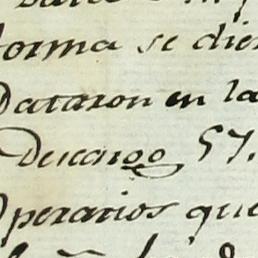 forma se dier
Dataron en la
Descargo 57.
Operarios que